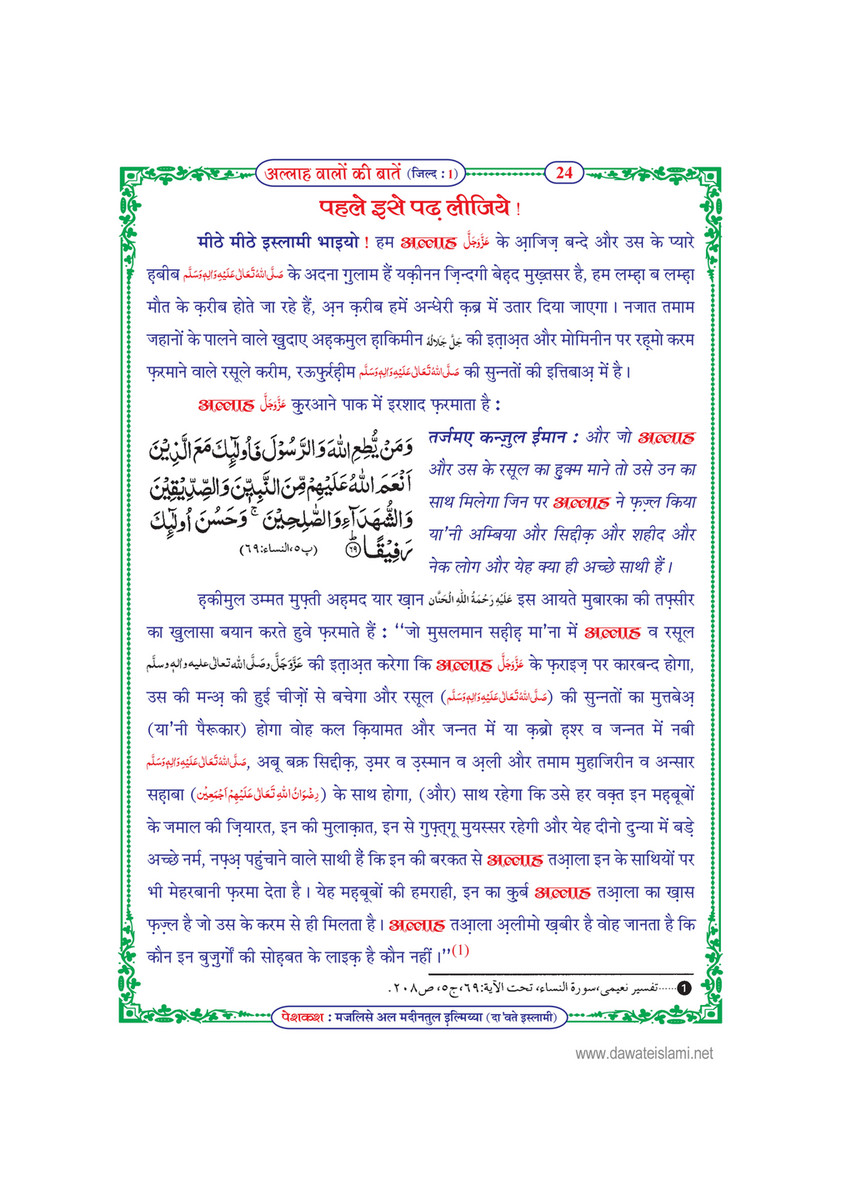 अल्लाह वालों की बातें (जिल्द : 1)
24
पहले इसे पढ़ लीजिये !
मीठे मीठे इस्लामी भाइयो ! हम अल्लाह عَزَّوَجَلَّ के आ़जिज़ बन्दे और उस के प्यारे
हबीब صَلَّى اللهُ تَعَالٰى عَلَيْهِ وَاٰلِهٖ وَسَلَّم के अदना ग़ुलाम हैं यक़ीनन ज़िन्दगी बेहद मुख़्तसर है, हम लम्हा ब लम्हा
मौत के क़रीब होते जा रहे हैं, अ़न क़रीब हमें अन्धेरी क़ब्र में उतार दिया जाएगा । नजात तमाम
जहानों के पालने वाले ख़ुदाए अह़कमुल ह़ाकिमीन جَلَّ جَلَالُهٗ की इत़ाअ़त और मोमिनीन पर रह़मो करम
फ़रमाने वाले रसूले करीम, रऊफ़ुर्रह़ीम صَلَّى اللهُ تَعَالٰى عَلَيْهِ وَاٰلِهٖ وَسَلَّم की सुन्नतों की इत्तिबाअ़ में है ।
अल्लाह عَزَّوَجَلَّ क़ुरआने पाक में इरशाद फ़रमाता है :
وَمَنْ يُّطِعِ اللّٰهَ وَالرَّسُوْلَ فَاُولٰٓئِكَ مَعَ الَّذِيْنَ
اَنْعَمَ اللّٰهُ عَلَيْهِمْ مِّنَ النَّبِيّٖنَ وَالصِّدِّيْقِيْنَ
وَالشُّهَدَآءِ وَالصّٰلِحِيْنَ ۚ وَحَسُنَ اُولٰٓئِكَ
رَفِيْقًا ﴿٦٩﴾ (پ٥،النساء:٦٩)
तर्जमए कन्ज़ुल ईमान : और जो अल्लाह
और उस के रसूल का हुक्म माने तो उसे उन का
साथ मिलेगा जिन पर अल्लाह ने फ़ज़्ल किया
या'नी अम्बिया और सिद्दीक़ और शहीद और
नेक लोग और येह क्या ही अच्छे साथी हैं ।
ह़कीमुल उम्मत मुफ़्ती अह़मद यार ख़ान عَلَيْهِ رَحْمَةُ اللهِ الْحَنَّان इस आयते मुबारका की तफ़्सीर
का ख़ुलासा बयान करते हुवे फ़रमाते हैं : ‘‘जो मुसलमान सह़ीह़ मा'ना में अल्लाह व रसूल
عَزَّوَجَلَّ وصَلَّى الله تعالٰى عليه واٰله وسلَّم की इत़ाअ़त करेगा कि अल्लाह عَزَّوَجَلَّ के फ़राइज़ पर कारबन्द होगा,
उस की मन्अ़ की हुई चीज़ों से बचेगा और रसूल (صَلَّى اللهُ تَعَالٰى عَلَيْهِ وَاٰلِهٖ وَسَلَّم) की सुन्नतों का मुत्तबेअ़
(या'नी पैरूकार) होगा वोह कल क़ियामत और जन्नत में या क़ब्रो ह़श्र व जन्नत में नबी
صَلَّى اللهُ تَعَالٰى عَلَيْهِ وَاٰلِهٖ وَسَلَّم, अबू बक्र सिद्दीक़, उ़मर व उ़स्मान व अ़ली और तमाम मुहाजिरीन व अन्सार
सह़ाबा (رِضْوَانُ اللهِ تَعَالٰى عَلَيْهِمْ اَجْمَعِيْن) के साथ होगा, (और) साथ रहेगा कि उसे हर वक़्त इन मह़बूबों
के जमाल की ज़ियारत, इन की मुलाक़ात, इन से गुफ़्त्गू मुयस्सर रहेगी और येह दीनो दुन्या में बड़े
अच्छे नर्म, नफ़्अ़ पहुंचाने वाले साथी हैं कि इन की बरकत से अल्लाह तआ़ला इन के साथियों पर
भी मेहरबानी फ़रमा देता है । येह मह़बूबों की हमराही, इन का क़ुर्ब अल्लाह तआ़ला का ख़ास
फ़ज़्ल है जो उस के करम से ही मिलता है । अल्लाह तआ़ला अ़लीमो ख़बीर है वोह जानता है कि
कौन इन बुज़ुर्गों की सोह़बत के लाइक़ है कौन नहीं ।’’(1)
1......تفسير نعيمى،سورة النساء، تحت الآية:٦٩،ج٥،ص٢٠٨.
पेशकश : मजलिसे अल मदीनतुल इ़ल्मिय्या (दा'वते इस्लामी)
www.dawateislami.net